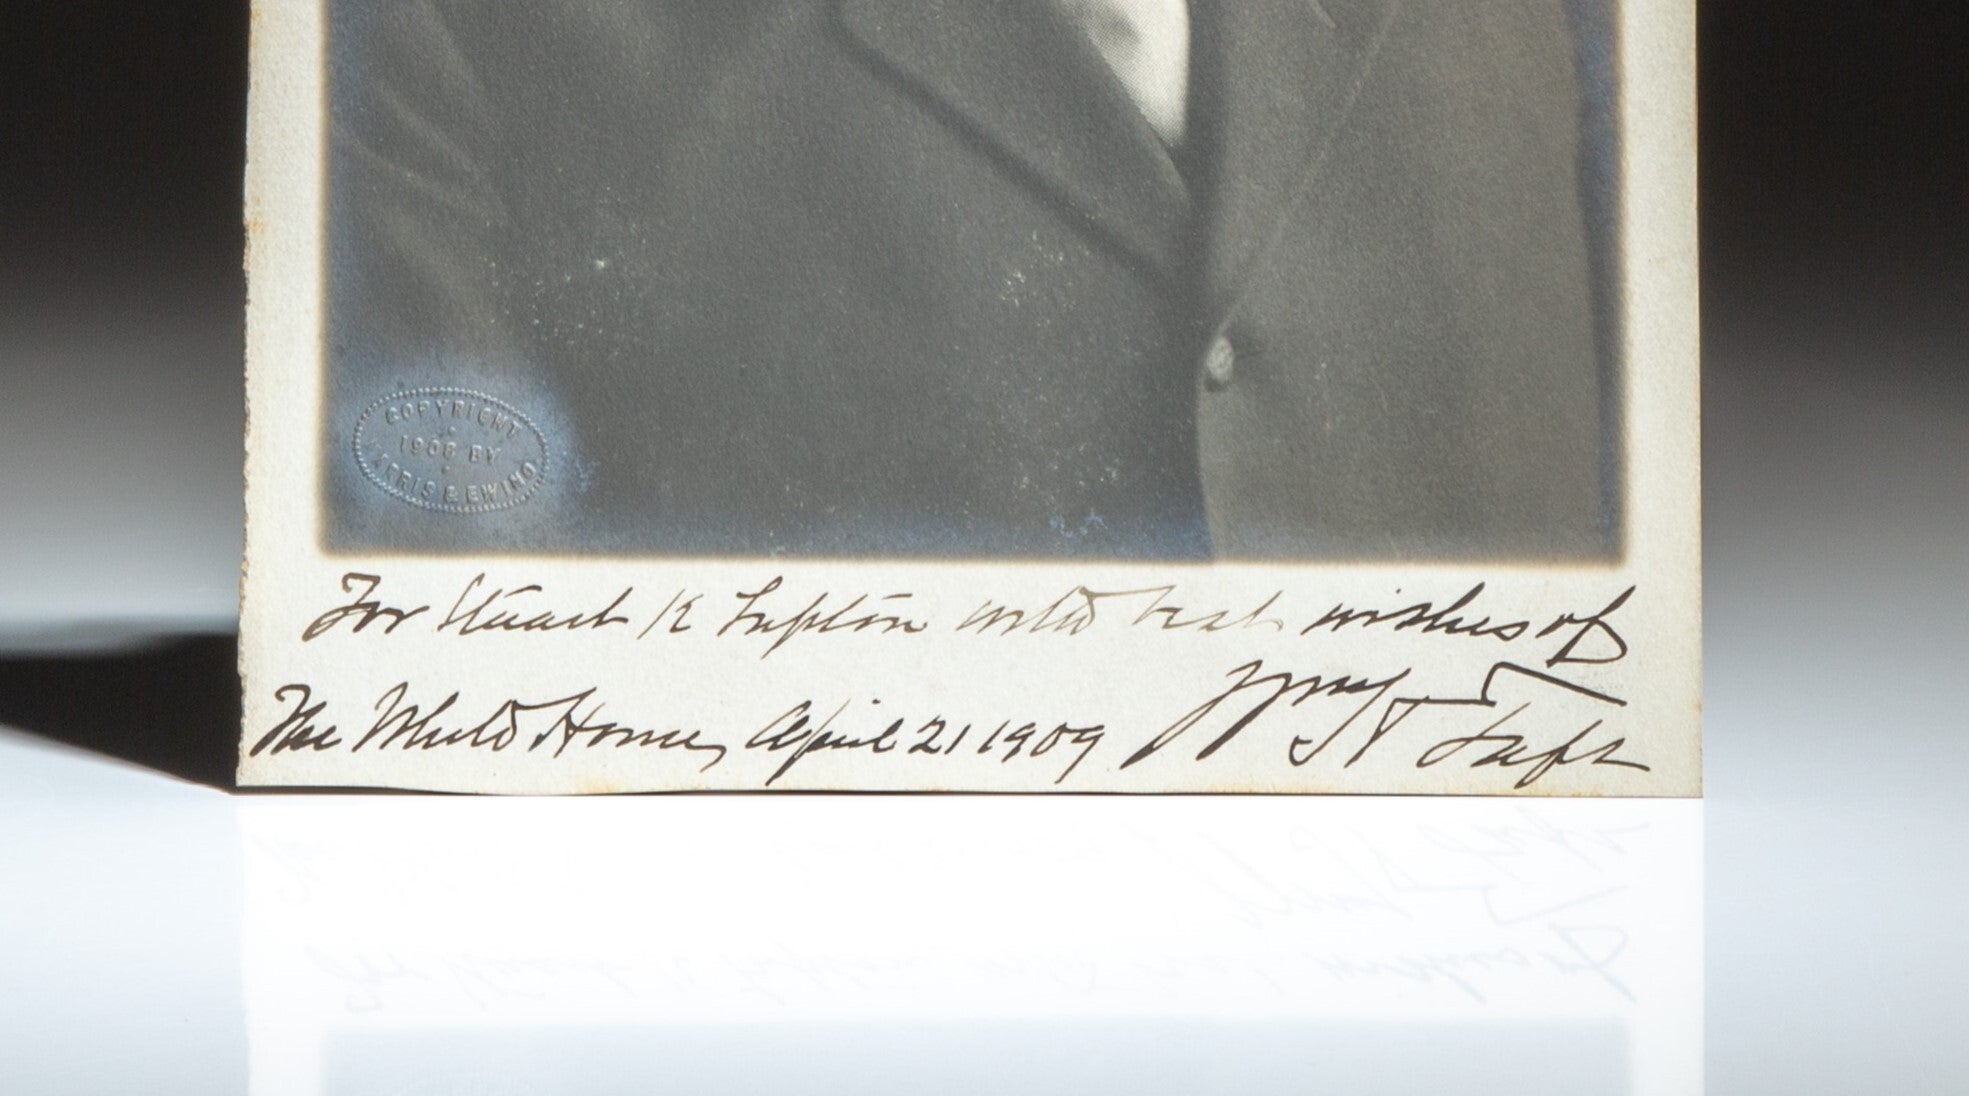 COPYRIGHT
1908 BY
HARRIS & EWING
For Stuart K Lupton with best wishes of
Wm H Taft
The White House, April 21 1909